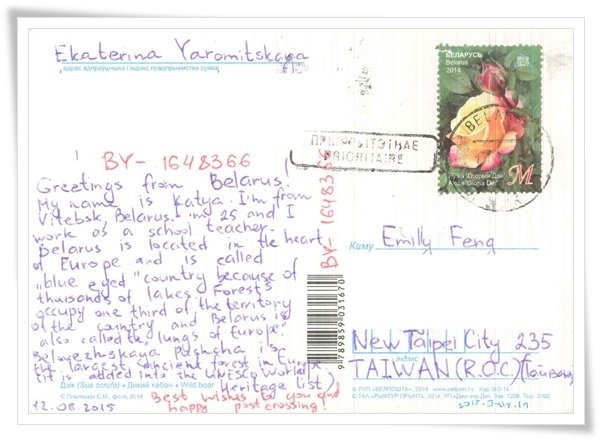 Ekaterina Yaromitskaya
адрас адпраўшчыка і індэкс прадпрыемства сувязі
БЕЛАРУСЬ
Belarus
2014
M
ПРЫЯРЫТЭТНАЕ
PRIORITAIRE
BY- 1648366
Greetings from Belarus!
My name is Katya. I'm from
Vitebsk, Belarus. I'm 25 and I
work as a school teacher.
Belarus is located in the heart
of Europe and is called
„blue eyed" country because of
thousands of lakes. Forests
occupy one third of the territory
of the country and Belarus is
also called „the lungs of Europe".
Belovezhskaya pushcha is
the largest ancient forest in Europe
(it is added into the UNESCO World
Heritage list)
Best wishes to you and
happy postcrossing!
12.08.2015
Дзік (Sus scrofa) • Дикий кабан • Wild boar
BY- 1648366
9 789859 031670
Каму
Emilly Feng
New Taipei City 235
індэкс
TAIWAN (R.O.C.) (Тайвань)
© РУП «БЕЛПОШТА», 2014